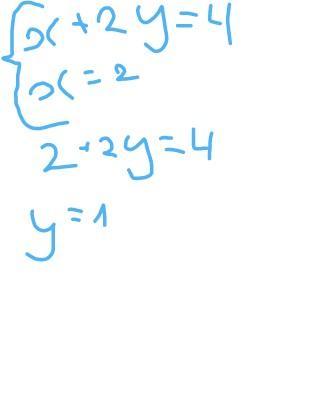 x + 2y = 4
x = 2
2 + 2y = 4
y = 1